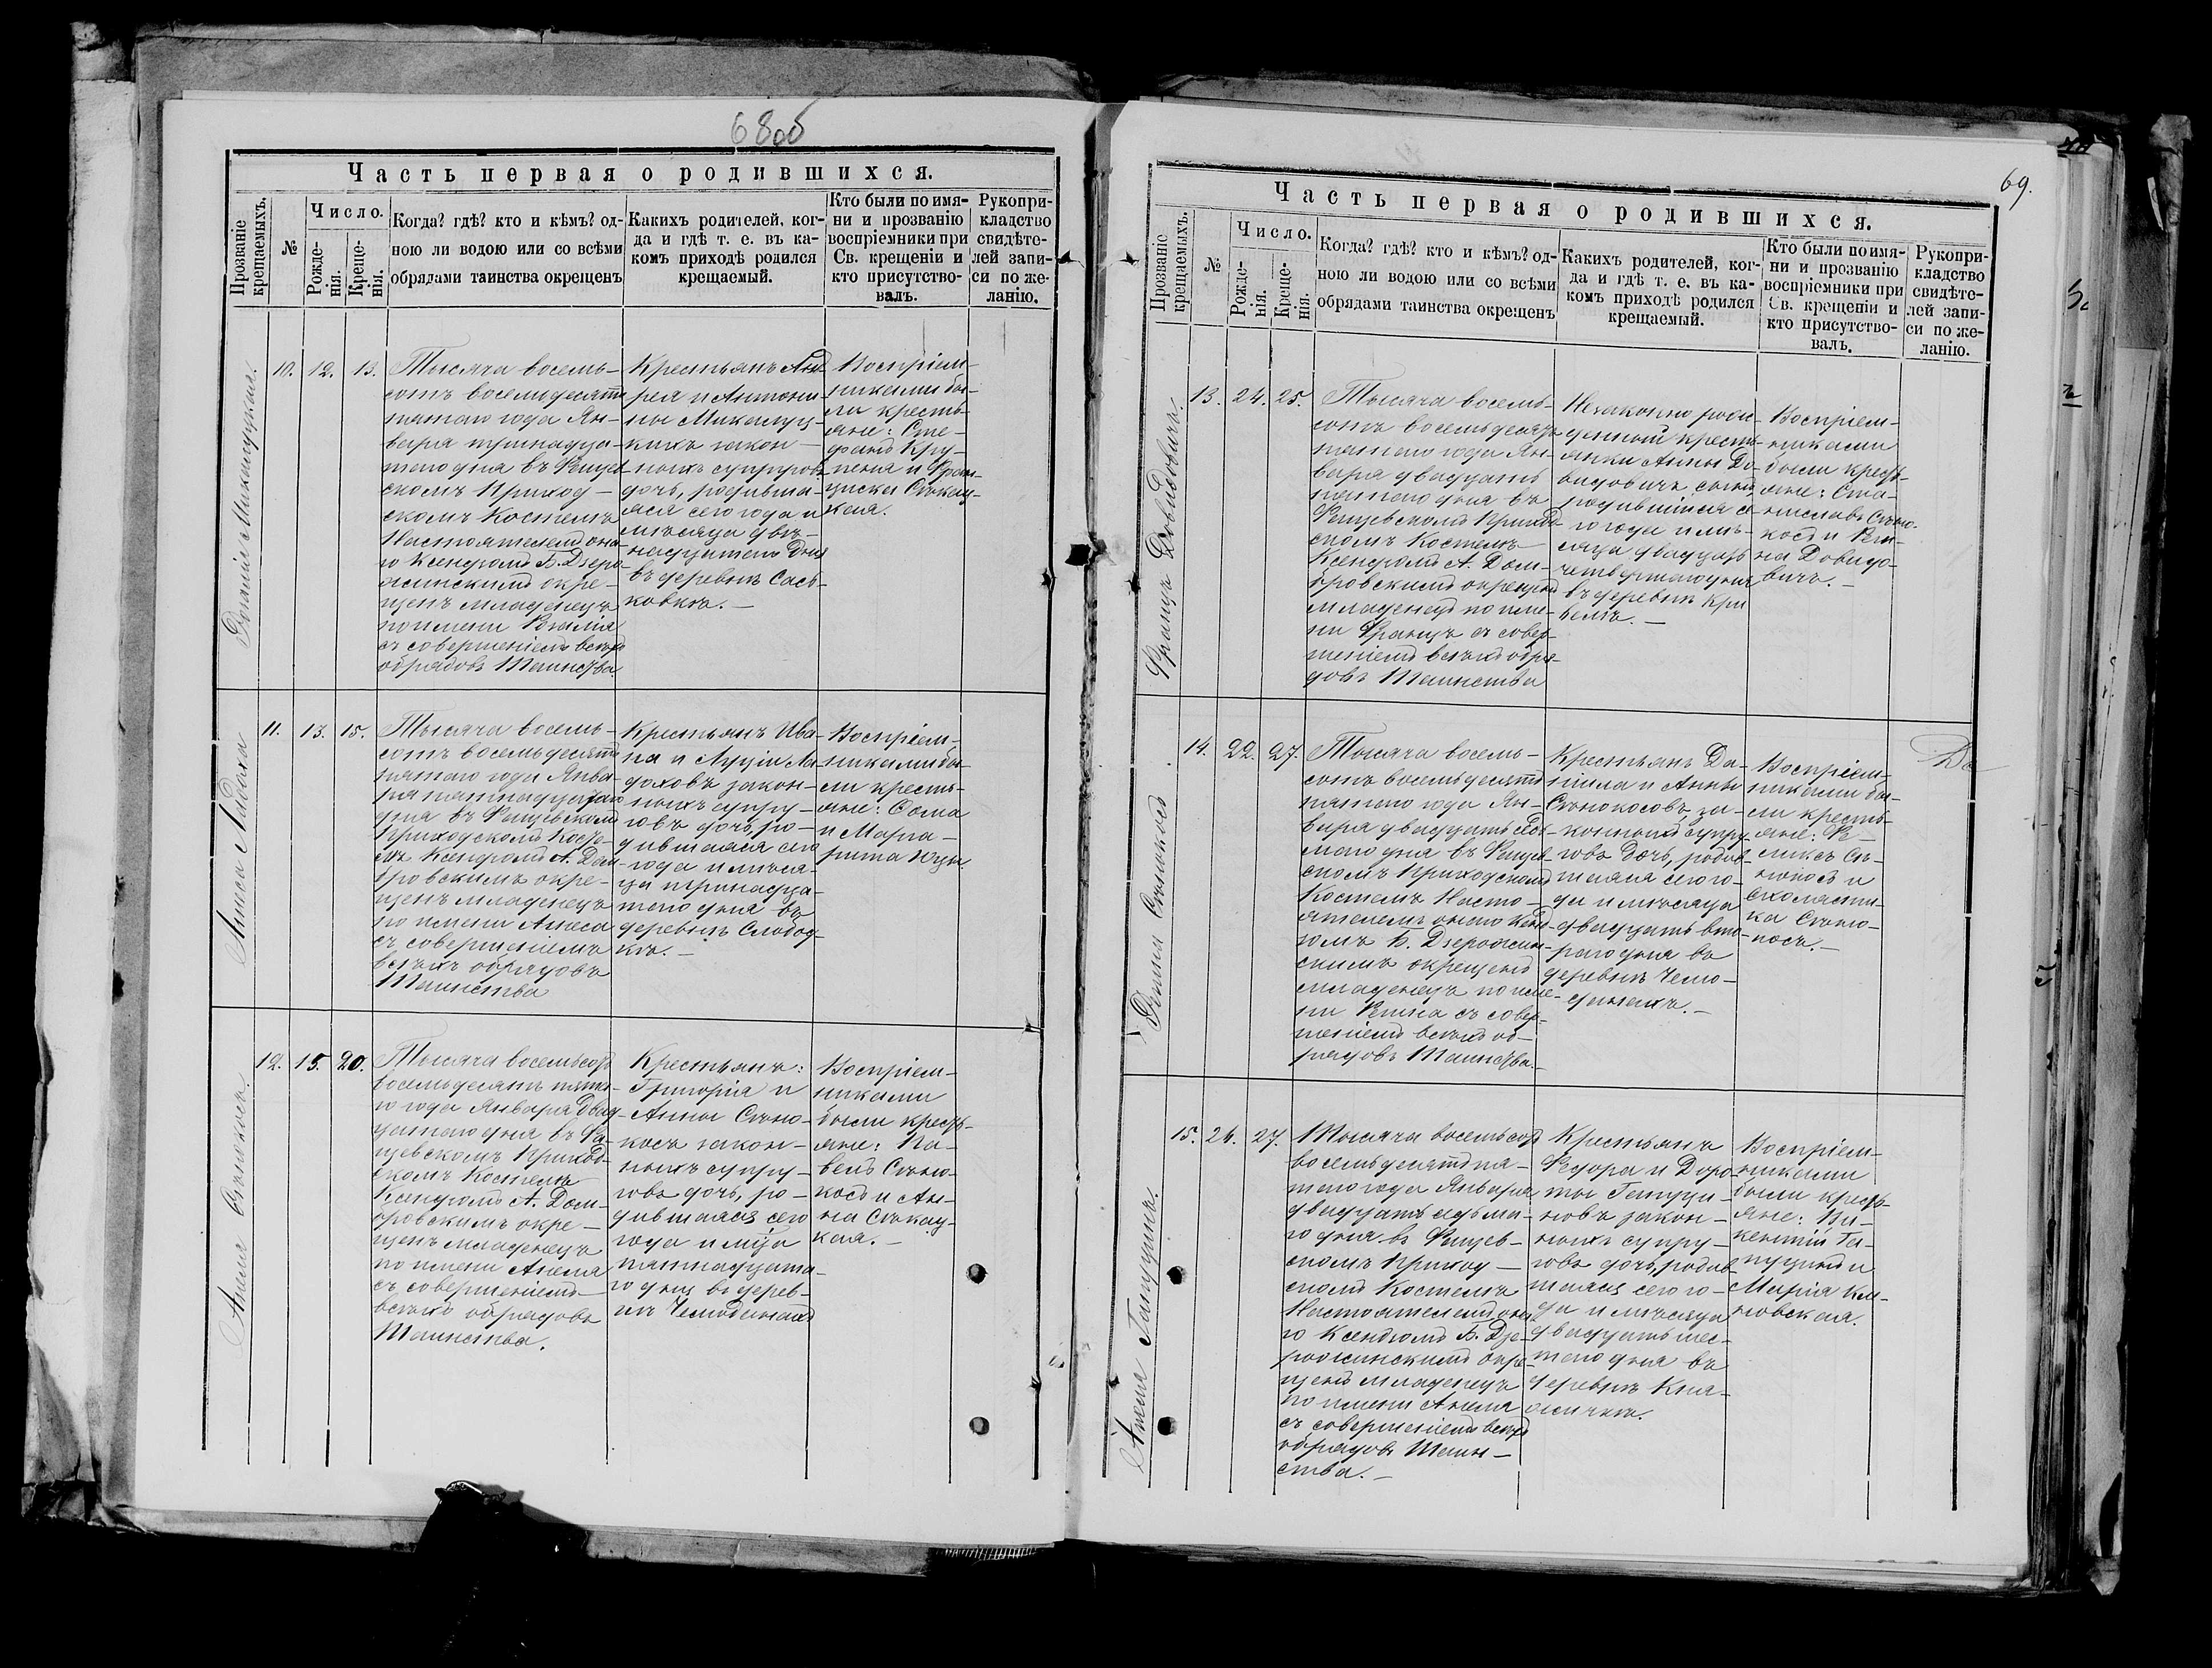 68об
Часть первая о родившихся.
Прозваніе крещаемыхъ.
№
Число.
Рожде-
нія.
Креще-
нія.
Когда? гдѣ? кто и кѣмъ? од-
ною ли водою или со всѣми
обрядами таинства окрещенъ
Какихъ родителей, ког-
да и гдѣ т. е. въ ка-
комъ приходѣ родился
крещаемый.
Кто были по имя-
ни и прозванію
воспріемники при
Св. крещеніи и
кто присутство-
валъ.
Рукопри-
кладство
свидѣте-
лей запи-
си по же-
ланію.
10. 12. 13.
Тысяча восемь-
сотъ восемьдесятъ
пятаго года Ян-
варя тринадца-
таго дня въ
скомъ Приход-
скомъ Костелѣ
Настоятелемъ она-
го Ксендзомъ Б. Дзеро
жинскимъ окре-
щенъ младенецъ
по имени
съ совершеніемъ всѣхъ
обрядовъ Таинства
Крестьянъ Анд
рея и Антони
ны
кихъ закон-
ныхъ супруговъ
дочь, родивша-
яся сего года и
мѣсяца двѣ-
надцатаго дня
въ деревнѣ Сась
ковкѣ.-
Воспріем-
никами бы-
ли кресть-
яне: Сте-
фанъ Кру-
пеня и Фран-
циска
кая.
Анеса Лабоха
11. 13. 15.
Тысяча восемь-
сотъ восемьдесятъ
пятаго года Янва-
ря пятнадцатаго
дня въ
Приходскомъ Косте-
лѣ Ксендзомъ А. Дом-
бровскимъ окре-
щенъ младенецъ
по имени Анеса
съ совершеніемъ
всѣхъ обрядовъ
Таинства
Крестьянъ Ива-
на и Луціи Ла-
боховъ закон-
ныхъ супру-
говъ дочь, ро-
дившаяся сего
года и мѣся-
ца тринадца-
таго дня въ
деревнѣ Слобод-
кѣ.-
Воспріем-
никами бы-
ли кресть-
яне: Сома
и Марга-
рита
Анеля Сѣнокосъ.
12. 15. 20.
Тысяча восемьсотъ
восемьдесятъ пята-
го года Января двад-
цатаго дня въ Фа-
щевскомъ Приход-
скомъ Костелѣ
Ксендзомъ А. Дом-
бровскимъ окре-
щенъ младенецъ
по имени Анеля
съ совершеніемъ
всѣхъ обрядовъ
Таинства.
Крестьянъ:
Григорія и
Анны Сѣно-
косъ закон-
ныхъ супру-
говъ дочь, ро-
дившаяся сего
года и мѣца
пятнадцата-
го дня въ дерев-
нѣ Чемоданахъ
Воспріем-
никами
были кресть-
яне: Па-
велъ Сѣно-
косъ и Ан-
на
кая.-
69.
Часть первая о родившихся.
Прозваніе крещаемыхъ.
№
Число.
Рожде-
нія.
Креще-
нія.
Когда? гдѣ? кто и кѣмъ? од-
ною ли водою или со всѣми
обрядами таинства окрещенъ
Какихъ родителей, ког-
да и гдѣ т. е. въ ка-
комъ приходѣ родился
крещаемый.
Кто были по имя-
ни и прозванію
воспріемники при
Св. крещеніи и
кто присутство-
валъ.
Рукопри-
кладство
свидѣте-
лей запи-
си по же-
ланію.
Францъ Довидовичъ.
13. 24. 25.
Тысяча восемь-
сотъ восемьдесятъ
пятаго года Ян-
варя двадцать
пятаго дня въ
Фащевскомъ Приход-
скомъ Костелѣ
Ксендзомъ А. Дом-
бровскимъ окрещенъ
младенецъ по име-
ни Францъ съ совер-
шеніемъ всѣхъ обря-
довъ Таинства
Незаконно рож-
денный кресть-
янки Анны До-
видовичъ сынъ,
родившійся се-
го года и мѣ-
сяца двадцать
четвертаго дня
въ деревнѣ Кри
Воспріем-
никами
были кресть-
яне: Ста-
ниславъ Сѣно-
косъ и
на Довидо-
вичъ.-
14. 22. 27.
Тысяча восемь-
сотъ восемьдесятъ
пятаго года Ян-
варя двадцать седь-
маго дня въ Фащев-
скомъ Приходскомъ
Костелѣ Насто-
ятелемъ онаго Ксенд-
зомъ Б. Дзержин-
скимъ окрещенъ
младенецъ по име-
ни съ совер-
шеніемъ всѣхъ об-
рядовъ Таинства.-
Крестьянъ Да-
ніила и Анны
Сѣнокосовъ, за-
конныхъ супру-
говъ дочь, родив-
шаяся сего го-
да и мѣсяца
двадцать вто-
раго дня въ
деревнѣ Чемо-
данахъ.-
Воспріем-
никами бы-
ли кресть-
яне: Фе-
ликсъ Сѣ-
нокосъ и
Схоласти-
ка Сѣно-
косъ.-
Анеля Гапуцинъ.
15. 26. 27.
Тысяча восемьсотъ
восемьдесятъ пя-
таго года Января
двадцать седьма-
го дня въ Фащев-
скомъ Приход-
скомъ Костелѣ
Настоятелемъ она-
го Ксендзомъ Б. Дзе-
рожинскимъ окре-
щенъ младенецъ
по имени Анеля
съ совершеніемъ всѣхъ
обрядовъ Таин-
ства.-
Крестьянъ
Федора и Доро-
ты Гапуци-
новъ закон-
ныхъ супру-
говъ дочь, родив-
шаяся сего го-
да и мѣсяца
двадцать шес-
таго дня въ
деревнѣ Кня-
жичкѣ.
Воспріем-
никами
были кресть-
яне: Ви-
кентій Га-
пуцинъ и
Марія
новская.